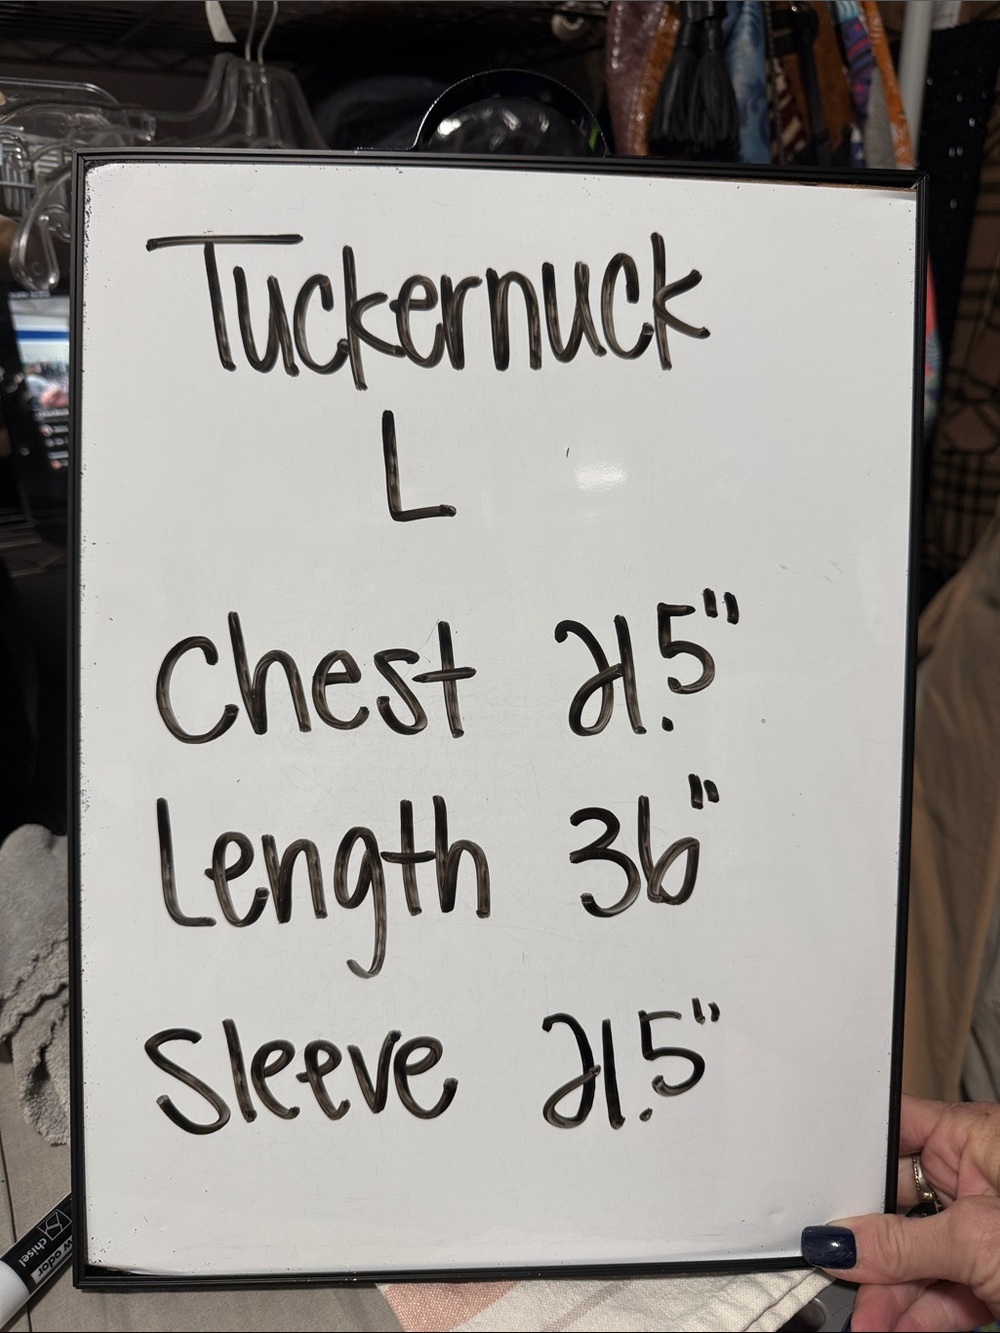 Tuckernuck
L
Chest 21.5"
Length 36"
Sleeve 21.5"
chisel
low odor